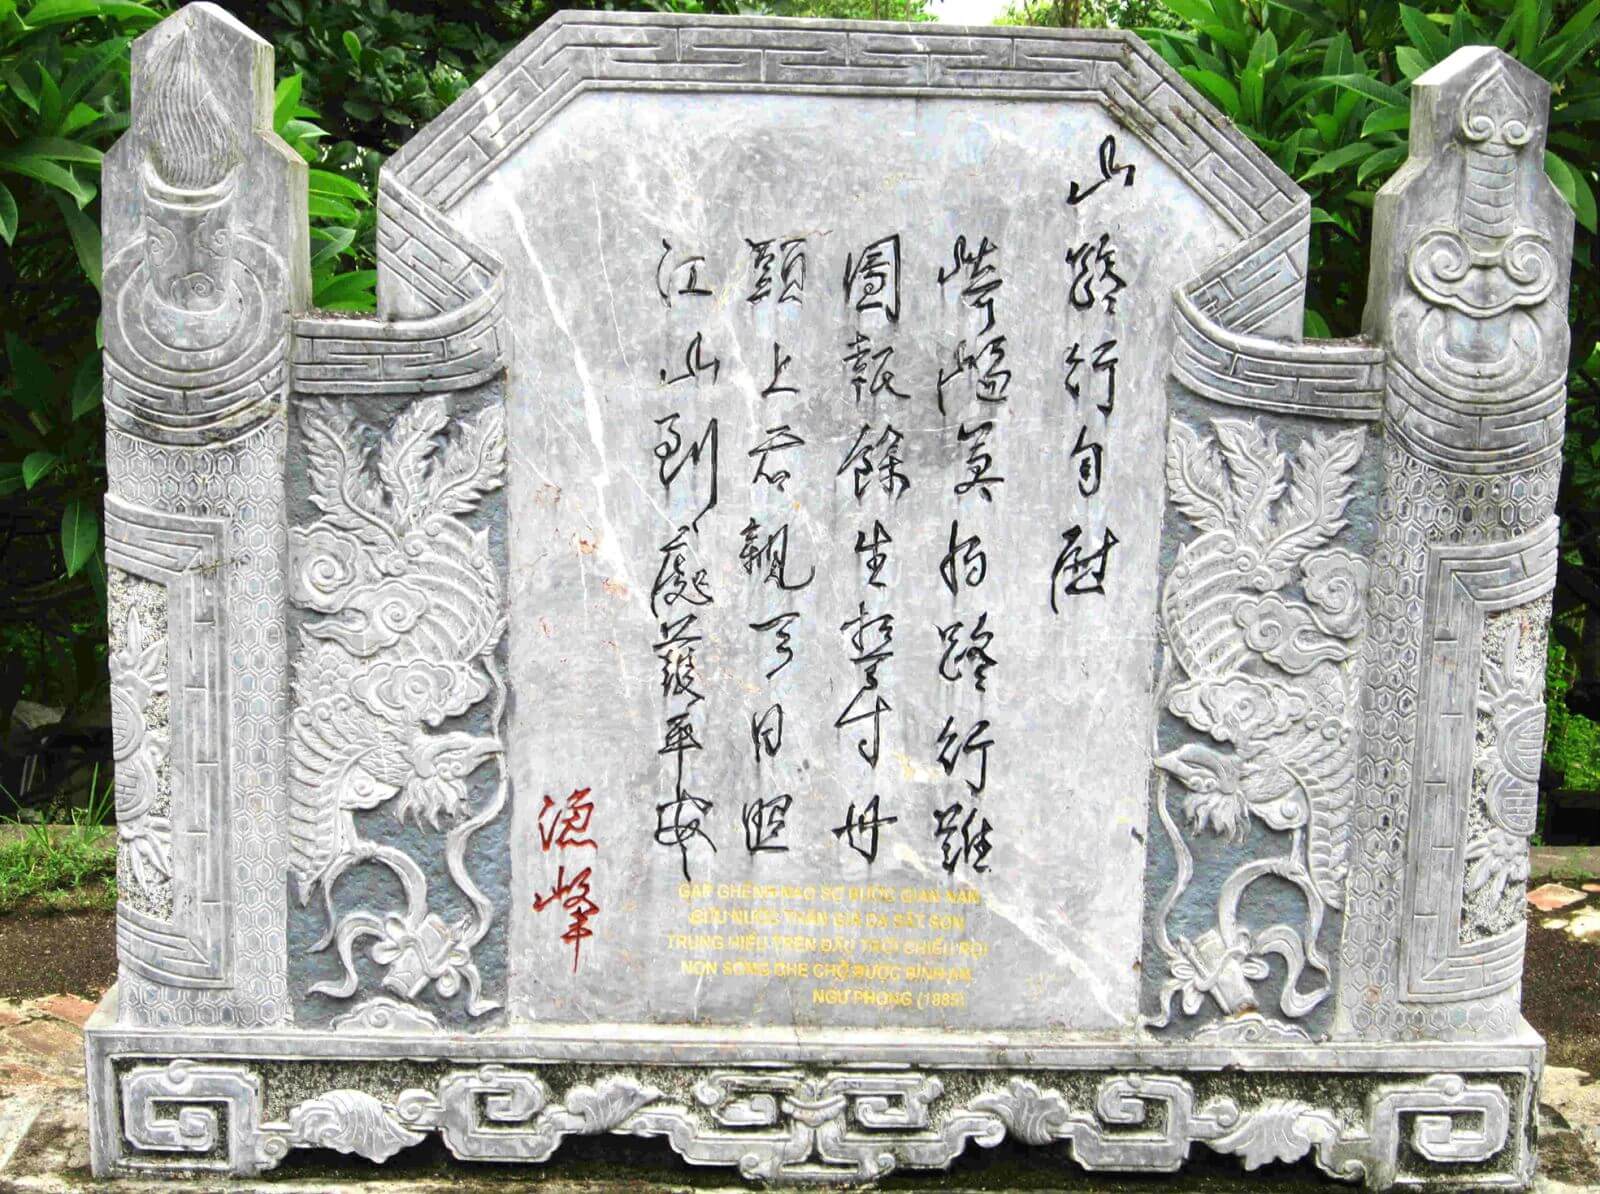 山路行自慰
崎嶇莫怕路行難
圖報餘生誓寸丹
頭上君親天日照
江山到處護平安
漁峰
GẬP GHỀNH NÀO SỢ BƯỚC GIAN NAN
CỨU NƯỚC THÂN GIÀ DẠ SẮT SON
TRUNG HIẾU TRÊN ĐẦU TRỜI CHIẾU RỌI
NON SÔNG CHE CHỞ ĐƯỢC BÌNH AN
NGƯ PHONG (1885)